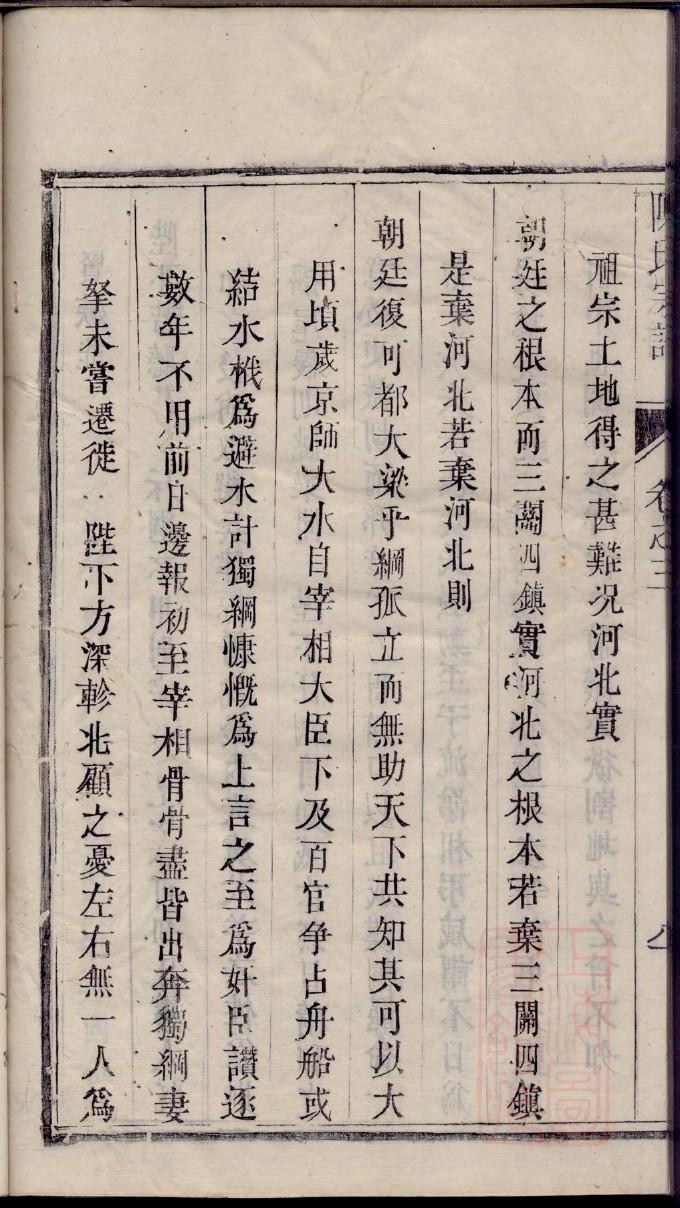 陳氏宗譜 卷之三 八
祖宗土地得之甚難况河北實
朝廷之根本而三關四鎮實河北之根本若棄三關四鎮
是棄河北若棄河北則
朝廷復可都大梁乎綱孤立而無助天下共知其可以大
用頃歲京師大水自宰相大臣下及百官争占舟船或
結水栰爲避水計獨綱慷慨爲上言之至爲奸臣讚逐
數年不用前日邊報初至宰相骨骨盡皆出奔獨綱妻
孥未嘗遷徙 陛下方深軫北顧之憂左右無一人爲